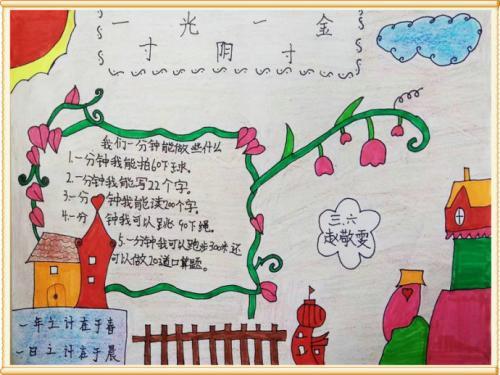 一 光 一 金
寸 阴 寸
我们一分钟能做些什么
1.一分钟我能拍60下球。
2.一分钟我能写22个字。
3.一分钟我能读200个字。
4.一分钟我可以跳90下绳。
5.一分钟我可以跑步300米还
可以做20道口算题。
三.六
赵敬雯
一年之计在于春
一日之计在于晨